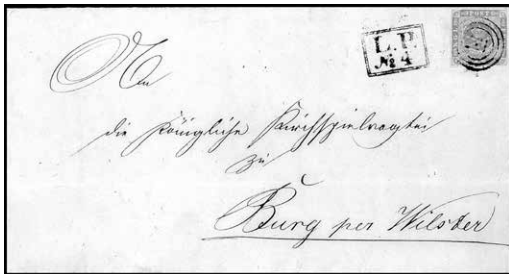 L.P.
№ 4
An
die Königliche Kirchspielvogtei
zu
Burg per Wilster